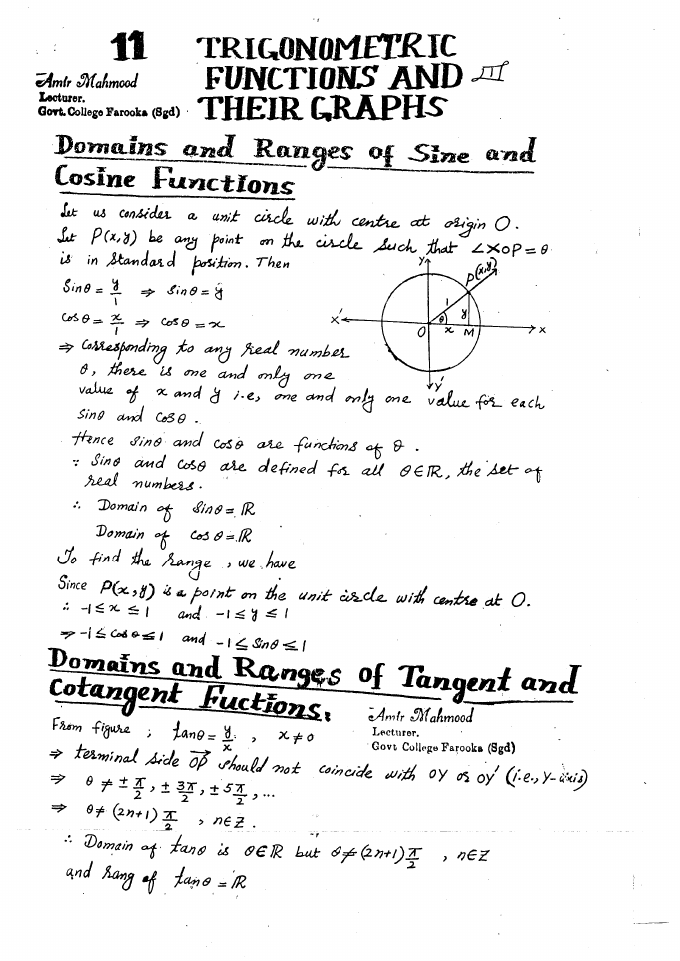 11 TRIGONOMETRIC
FUNCTIONS AND III
THEIR GRAPHS
Amir Mahmood
Lecturer.
Govt. College Farooka (Sgd)
Domains and Ranges of Sine and
Cosine Functions
Let us consider a unit circle with centre at origin O.
Let P(x,y) be any point on the circle such that ∠XOP = θ
is in standard position. Then
Sinθ = y/1 ⇒ Sinθ = y
Cosθ = x/1 ⇒ Cosθ = x
Y P(x,y)
1 y
X' θ X
O x M
Y'
⇒ Corresponding to any real number
θ, there is one and only one
value of x and y i.e, one and only one value for each
Sinθ and Cosθ.
Hence Sinθ and Cosθ are functions of θ.
∵ Sinθ and Cosθ are defined for all θ∈ℝ, the set of
real numbers.
∴ Domain of Sinθ = ℝ
Domain of Cosθ = ℝ
To find the range, we have
Since P(x,y) is a point on the unit circle with centre at O.
∴ -1 ≤ x ≤ 1 and -1 ≤ y ≤ 1
⇒ -1 ≤ Cosθ ≤ 1 and -1 ≤ Sinθ ≤ 1
Domains and Ranges of Tangent and
Cotangent Fuctions:
Amir Mahmood
Lecturer.
Govt College Farooka (Sgd)
From figure ; tanθ = y/x , x ≠ 0
⇒ terminal side OP→ should not coincide with OY or OY' (i.e., Y-axis)
⇒ θ ≠ ± π/2, ± 3π/2, ± 5π/2, ...
⇒ θ ≠ (2n+1) π/2 , n∈Z.
∴ Domain of tanθ is θ∈ℝ but θ ≠ (2n+1) π/2 , n∈Z
and Rang of tanθ = ℝ